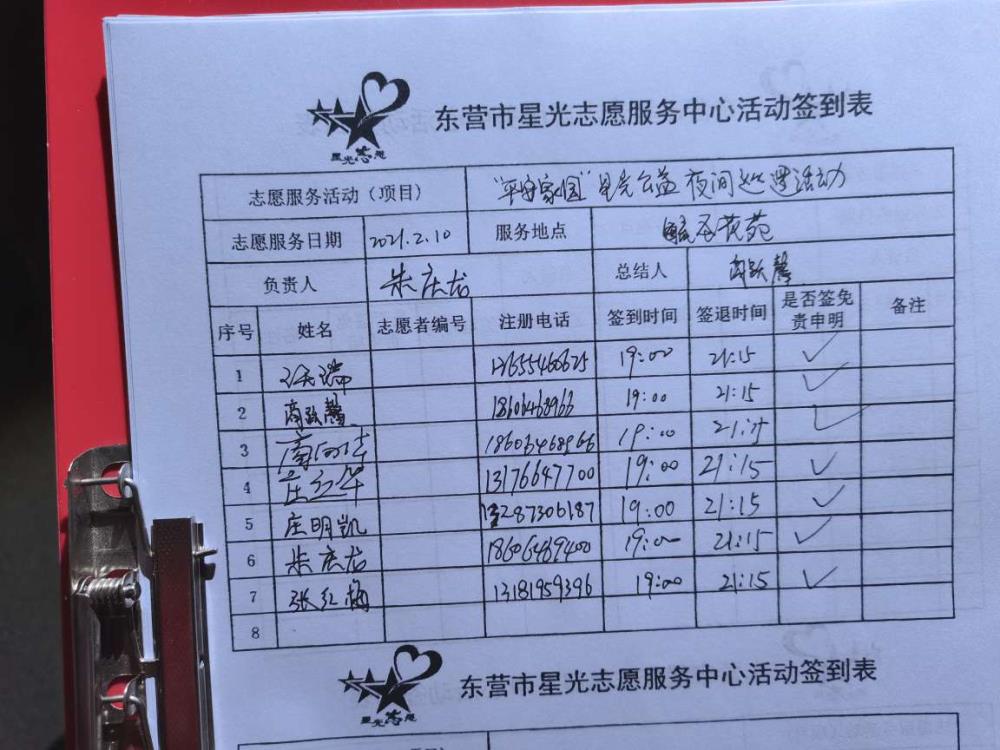 星光志愿
东营市星光志愿服务中心活动签到表
志愿服务活动（项目） “平安家园”星光公益夜间巡逻活动
志愿服务日期 2021.2.10 服务地点 花苑
负责人 朱庆龙 总结人
序号 姓名 志愿者编号 注册电话 签到时间 签退时间 是否签免责申明 备注
1 13655460625 19:00 21:15 ✓
2 19:00 21:15 ✓
3 18606468966 19:00 21:15 ✓
4 庄红华 13176647700 19:00 21:15 ✓
5 庄明凯 13287306187 19:00 21:15 ✓
6 朱庆龙 18606489400 19:00 21:15 ✓
7 张红梅 13181959396 19:00 21:15 ✓
8
星光志愿
东营市星光志愿服务中心活动签到表